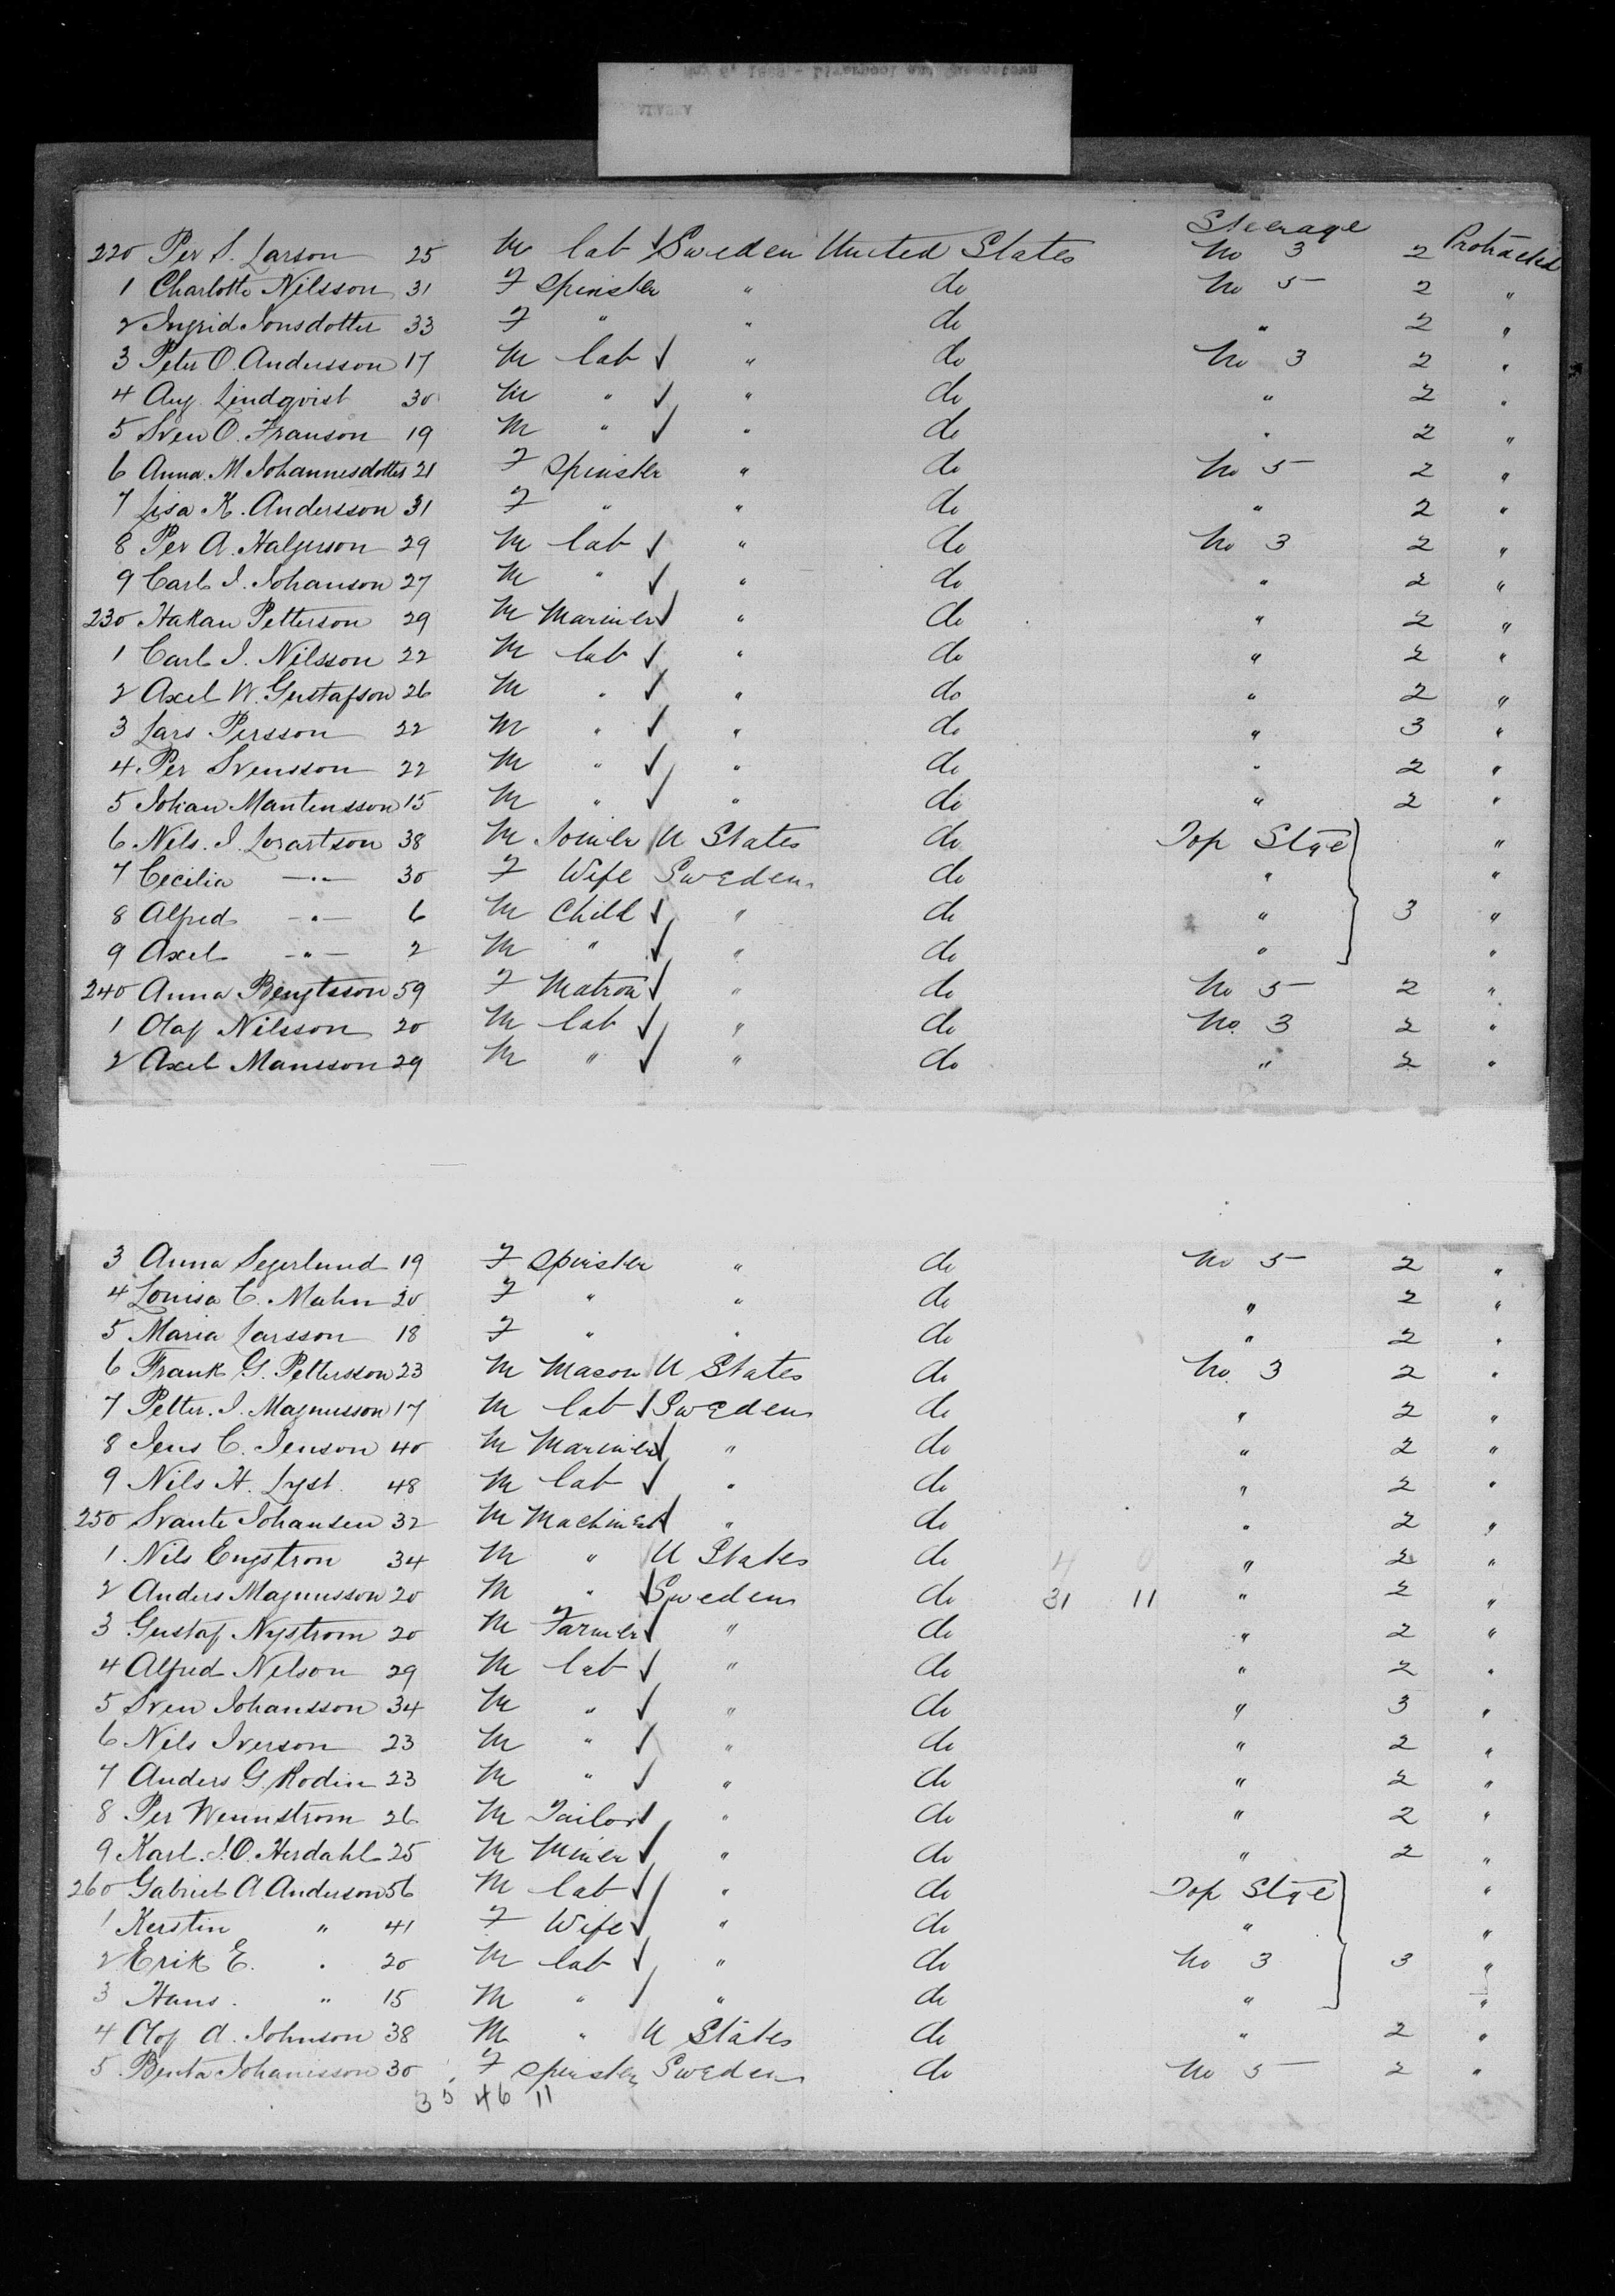 Steerage
220 Per S. Larson 25 M lab ✓ Sweden United States No 3 2 Protracted
1 Charlotte Nilsson 31 F Spinster " do No 5 2 "
2 Ingrid Jonsdotter 33 F " " do " 2 "
3 Peter O. Andersson 17 M lab ✓ " do No 3 2 "
4 Aug. Lindqvist 30 M " ✓ " do " 2 "
5 Sven O. Franson 19 M " ✓ " do " 2 "
6 Anna M. Johannesdotter 21 F Spinster " do No 5 2 "
7 Lisa K. Andersson 31 F " " do " 2 "
8 Per A. Halgerson 29 M lab ✓ " do No 3 2 "
9 Carl J. Johanson 27 M " ✓ " do " 2 "
230 Hakan Petterson 29 M Mariner ✓ " do " 2 "
1 Carl J. Nilsson 22 M lab ✓ " do " 2 "
2 Axel W. Gustafson 26 M " ✓ " do " 2 "
3 Lars Persson 22 M " ✓ " do " 3 "
4 Per Svensson 22 M " ✓ " do " 2 "
5 Johan Mantensson 15 M " ✓ " do " 2 "
6 Nils. J. 38 M Joiner U States do Top Stge "
7 Cecilia —"— 30 F Wife Sweden do " "
8 Alfred —"— 6 M Child ✓ " do " 3 "
9 Axel —"— 2 M " ✓ " do " "
240 Anna Bengtsson 59 F Matron ✓ " do No 5 2 "
1 Olaf Nilsson 20 M lab ✓ " do No. 3 2 "
2 Axel Mansson 29 M " ✓ " do " 2 "
3 Anna Segerlund 19 F Spinster " do No 5 2 "
4 Louisa C. Malm 20 F " " do " 2 "
5 Maria Larsson 18 F " " do " 2 "
6 Frank G. Pettersson 23 M Mason U States do No. 3 2 "
7 Petter. J. Magnusson 17 M lab ✓ Sweden do " 2 "
8 Jens C. Jenson 40 M Mariner ✓ " do " 2 "
9 Nils H. Lyst. 48 M lab ✓ " do " 2 "
250 Svante Johansen 32 M Machinest ✓ " do " 2 "
1 Nils Engstron 34 M " U States do 4 0 " 2 "
2 Anders Magnusson 20 M " ✓ Sweden do 31 11 " 2 "
3 Gustaf Nystrom 20 M Farmer ✓ " do " 2 "
4 Alfred Nelson 29 M lab ✓ " do " 2 "
5 Sven Johansson 34 M " ✓ " do " 3 "
6 Nils Iverson 23 M " ✓ " do " 2 "
7 Anders G. Rodin 23 M " ✓ " do " 2 "
8 Per Wennstrom 26 M Tailor ✓ " do " 2 "
9 Karl. J. O. Herdahl 25 M Miner ✓ " do " 2 "
260 Gabriel A Anderson 56 M lab ✓ " do Top Stge "
1 Kerstin " 41 F Wife ✓ " do " "
2 Erik E. " 20 M lab ✓ " do No 3 3 "
3 Hans. " 15 M " ✓ " do " "
4 Olof A. Johnson 38 M " U States do " 2 "
5 Benta Johanisson 30 F Spinster Sweden do No 5 2 "
35 46 11